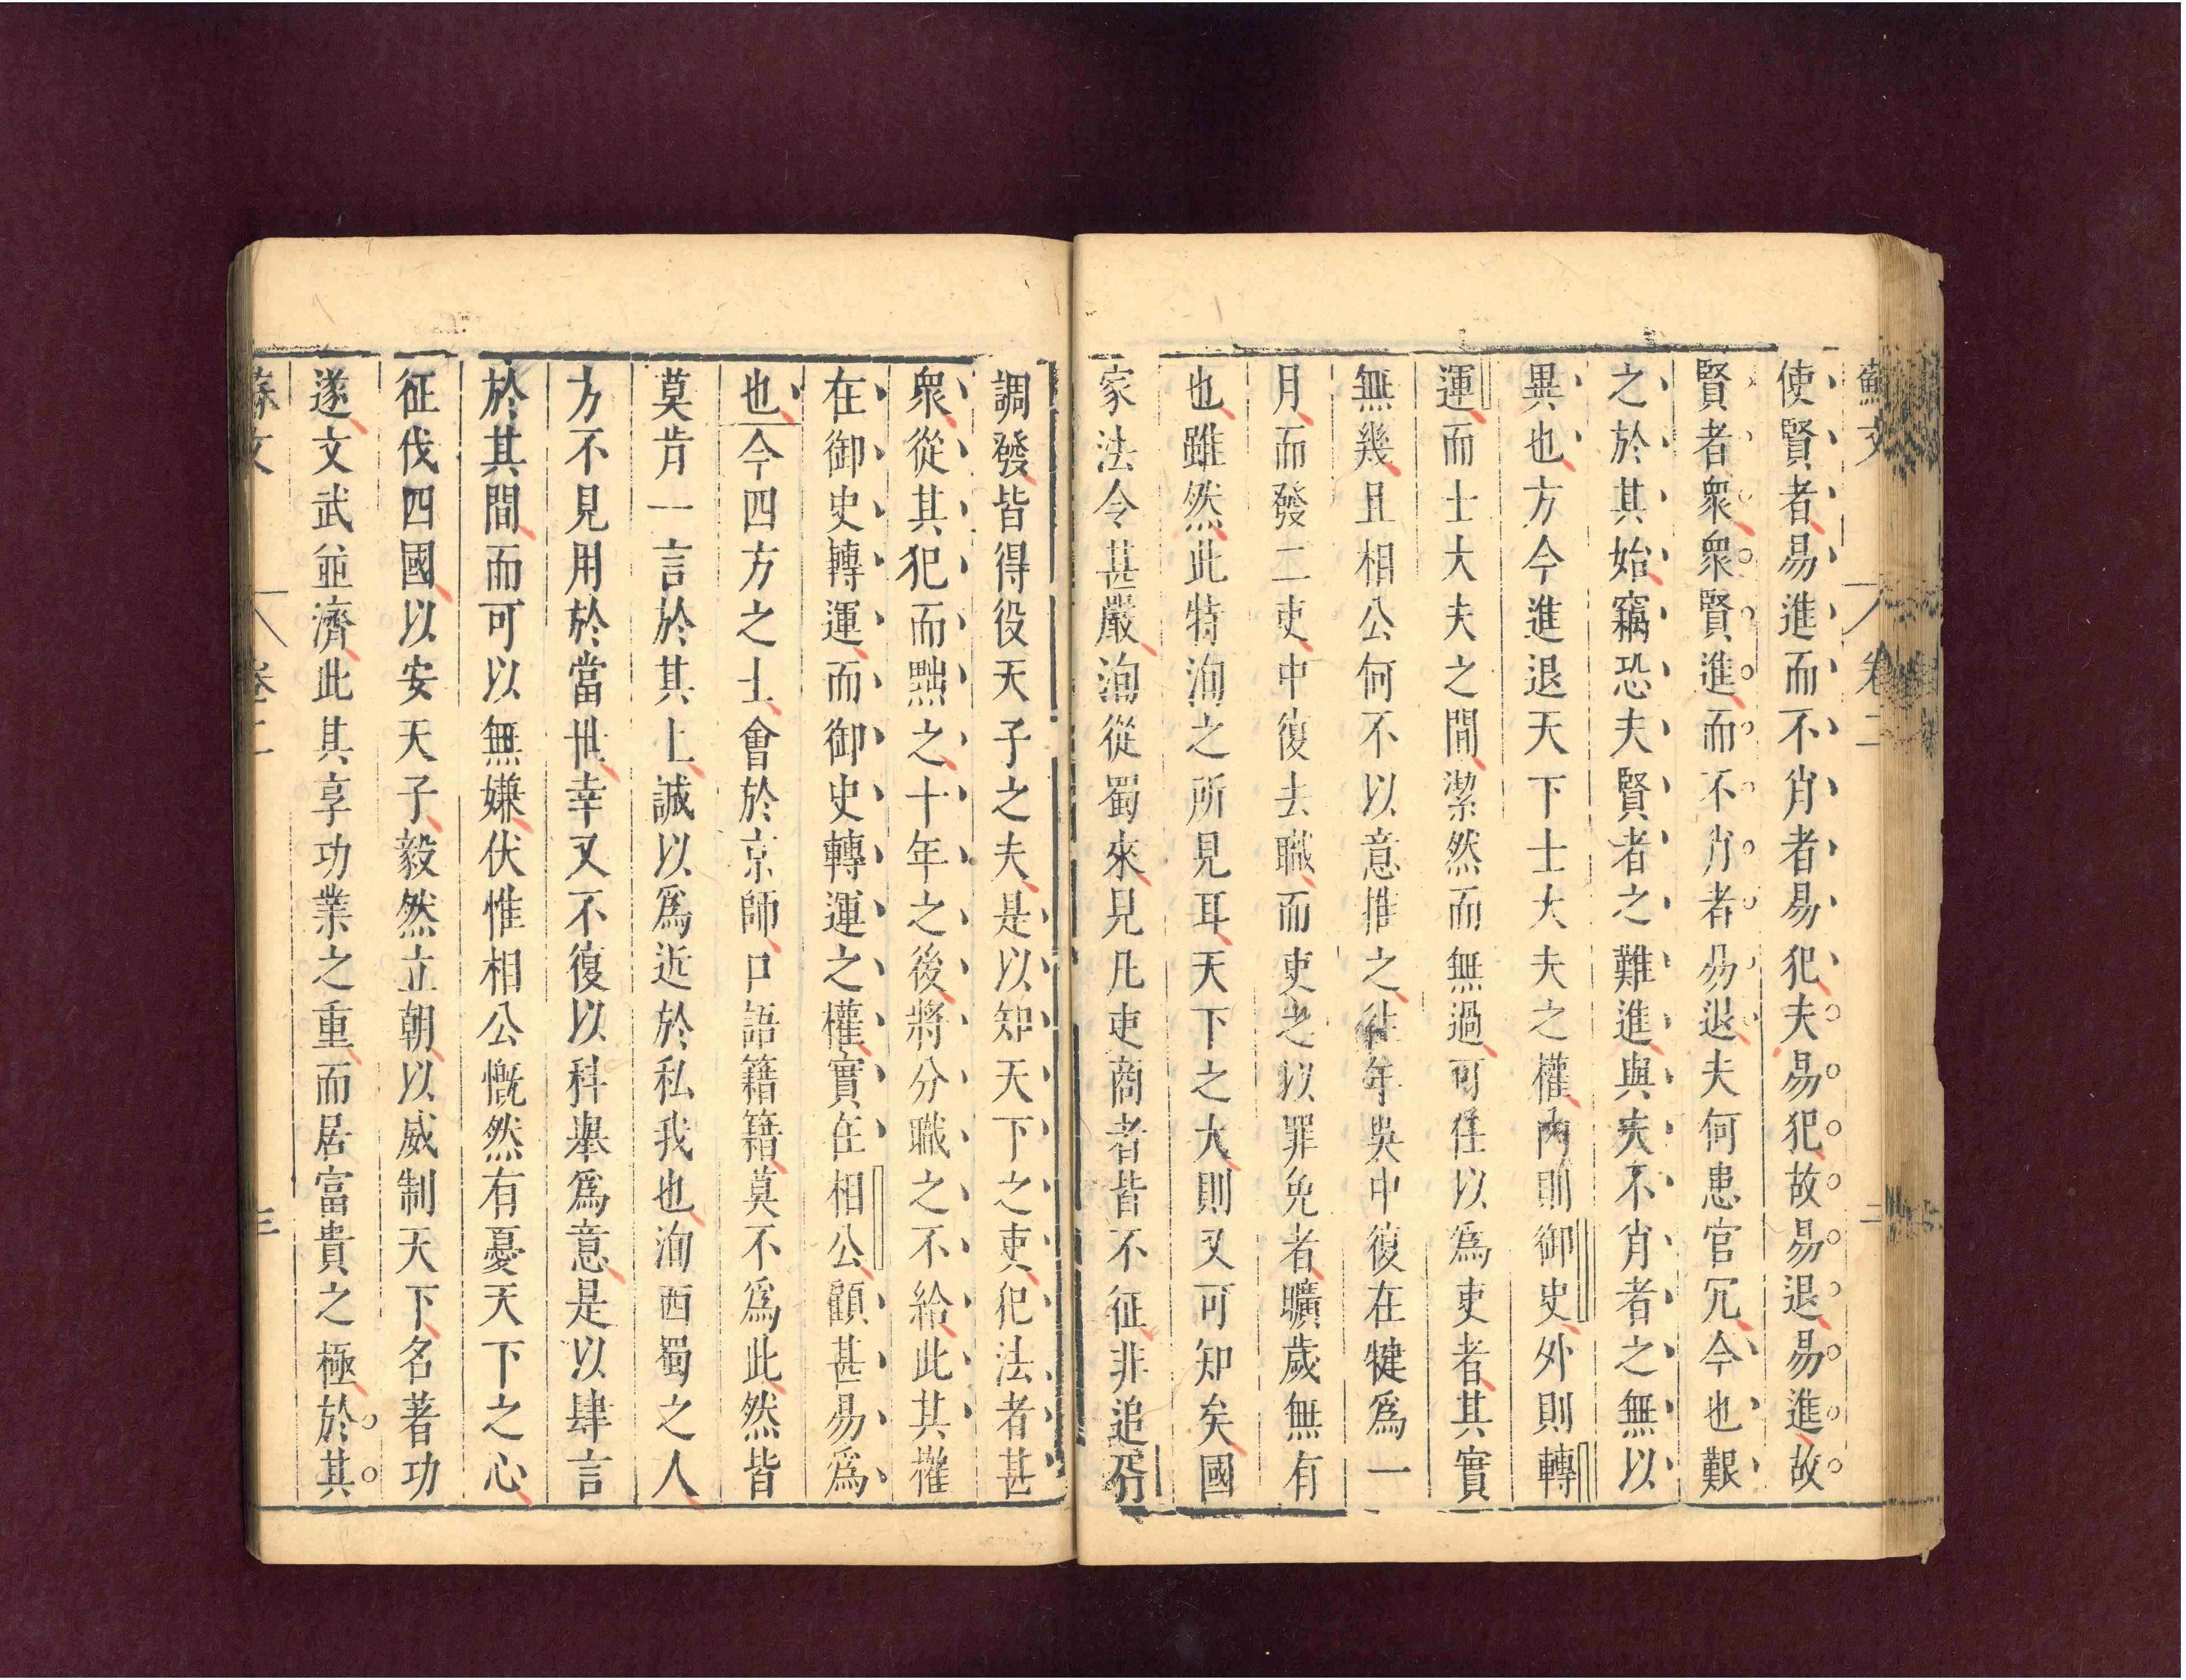 蘇文 卷二 二
使賢者易進而不肖者易犯夫易犯故易退易進故
賢者衆衆賢進而不肖者易退夫何患官冗今也艱
之於其始竊恐夫賢者之難進與夫不肖者之無以
異也方今進退天下士大夫之權內則御史外則轉
運而士大夫之間潔然而無過可任以爲吏者其實
無幾且相公何不以意推之往年吳中復在犍爲一
月而發二吏中復去職而吏之以罪免者曠歲無有
也雖然此特洵之所見耳天下之大則又可知矣國
家法令甚嚴洵從蜀來見凡吏商者皆不征非追胥
調發皆得役天子之夫是以知天下之吏犯法者甚
衆從其犯而黜之十年之後將分職之不給此其權
在御史轉運而御史轉運之權實在相公顧甚易爲
也今四方之士會於京師口語籍籍莫不爲此然皆
莫肯一言於其上誠以爲近於私我也洵西蜀之人
方不見用於當世幸又不復以科舉爲意是以肆言
於其間而可以無嫌伏惟相公慨然有憂天下之心
征伐四國以安天子毅然立朝以威制天下名著功
遂文武並濟此其享功業之重而居富貴之極於其
蘇文 卷二 三